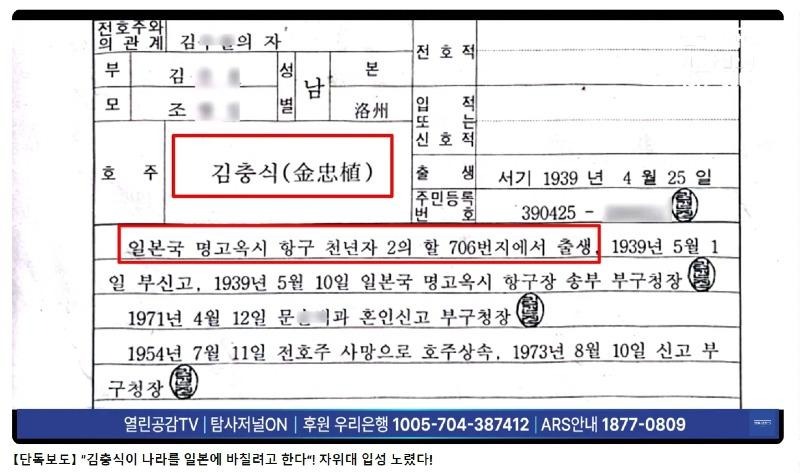 전호주와
의 관계
김 의 자
전 호 적
부
김
성
별
남
본
모
조
洛州
입 적
또 는
신호적
호 주
김충식(金忠植)
출 생
서기 1939 년 4 월 25 일
주민등록
번 호
390425 -
일본국 명고옥시 항구 천년자 2의 할 706번지에서 출생, 1939년 5월 1
일 부신고, 1939년 5월 10일 일본국 명고옥시 항구장 송부 부구청장
1971년 4월 12일 문 과 혼인신고 부구청장
1954년 7월 11일 전호주 사망으로 호주상속, 1973년 8월 10일 신고 부
구청장
열린공감TV | 탐사저널ON | 후원 우리은행 1005-704-387412 | ARS안내 1877-0809
【단독보도】 "김충식이 나라를 일본에 바칠려고 한다"! 자위대 입성 노렸다!